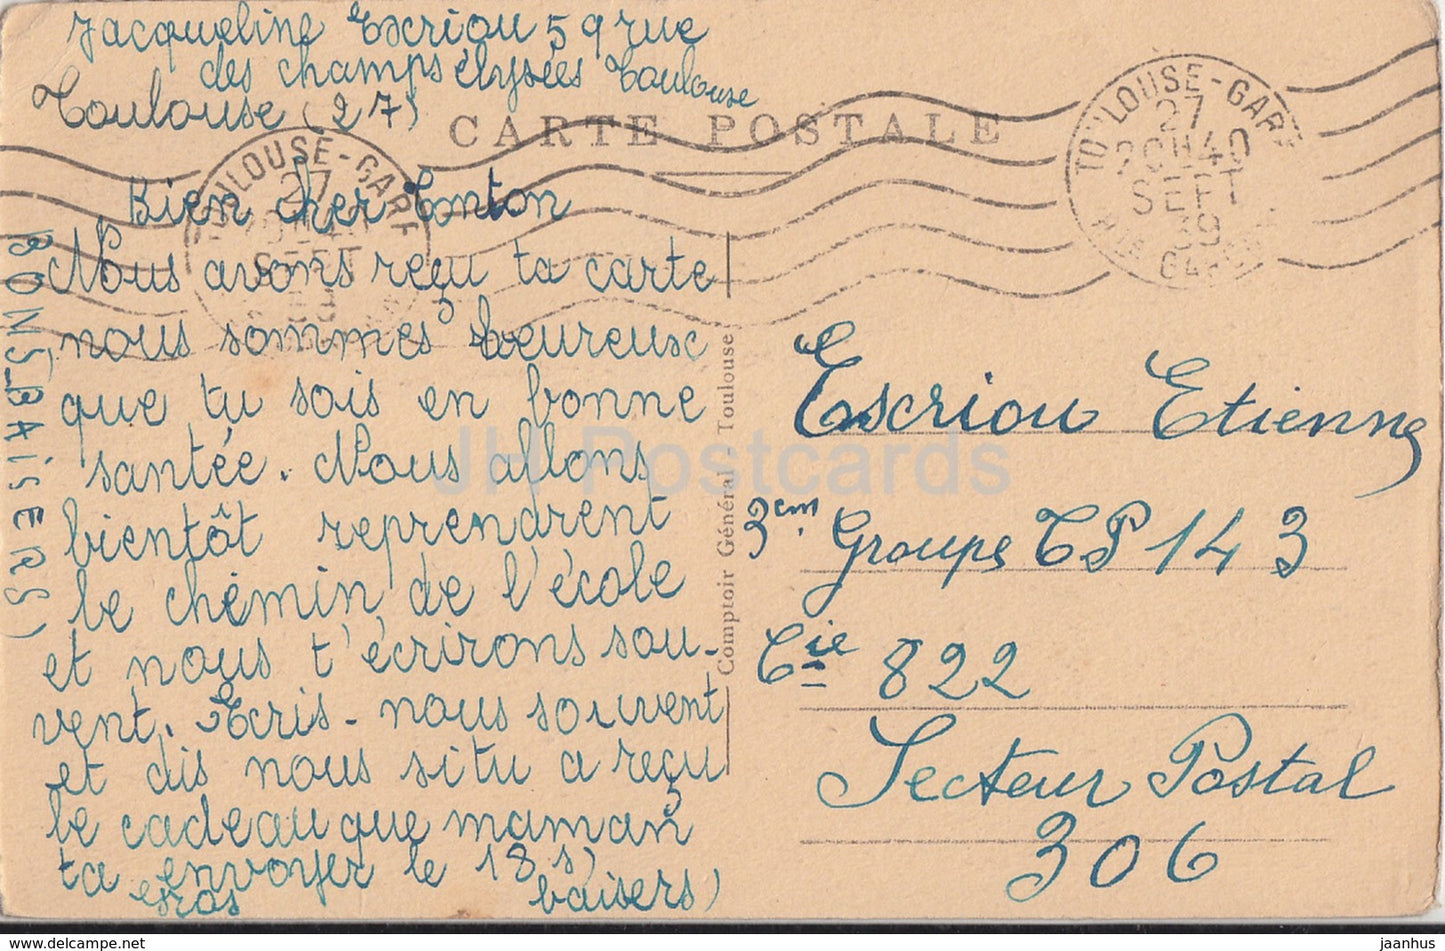 Jacqueline Escriou 59 rue
des champs élysées Toulouse
Toulouse (27)
CARTE POSTALE
TOULOUSE-GARE
27
SEPT
39
TOULOUSE-GARE
27
20H40
SEPT
39
Bien cher Tonton
Nous avons reçu ta carte
nous sommes heureuse
que tu sois en bonne
santée. Nous allons
bientôt reprendrent
le chémin de l'école
et nous t'écrirons sou-
vent. Ecris-nous souvent
et dis nous si tu a reçu
le cadeau que maman
ta envoyer le 18 s)
gros baisers)
BONS BAISERS)
Comptoir Général Toulouse
Escriou Etienne
3em Groupe TP 143
Cie 822
Secteur Postal
306
JH Postcards
© https://www.delcampe.net
jaanhus